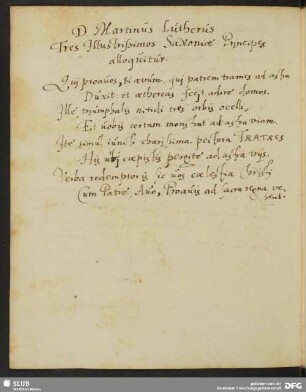 D. Martinus Lutherus
Tres Illustrissimos Saxoniæ Principes
alloquitur.
Qui proavos, & avum, qui patrem trames ad astra
Duxit: et æthereas fecit adire domos.
Ille triumphalis nitidi tres orbis ocelli,
Et vobis certam monstrat ad astra viam.
Ite simul iuncti charissima pectora FRATRES
His ubi cæpistis pergite ad astra viis.
Verba redemptoris sic vos cælestia Christi
Cum Patre, Avo, Proavis ad sacra regna ve,
hent.
SLUB
Wir führen Wissen.
DFG